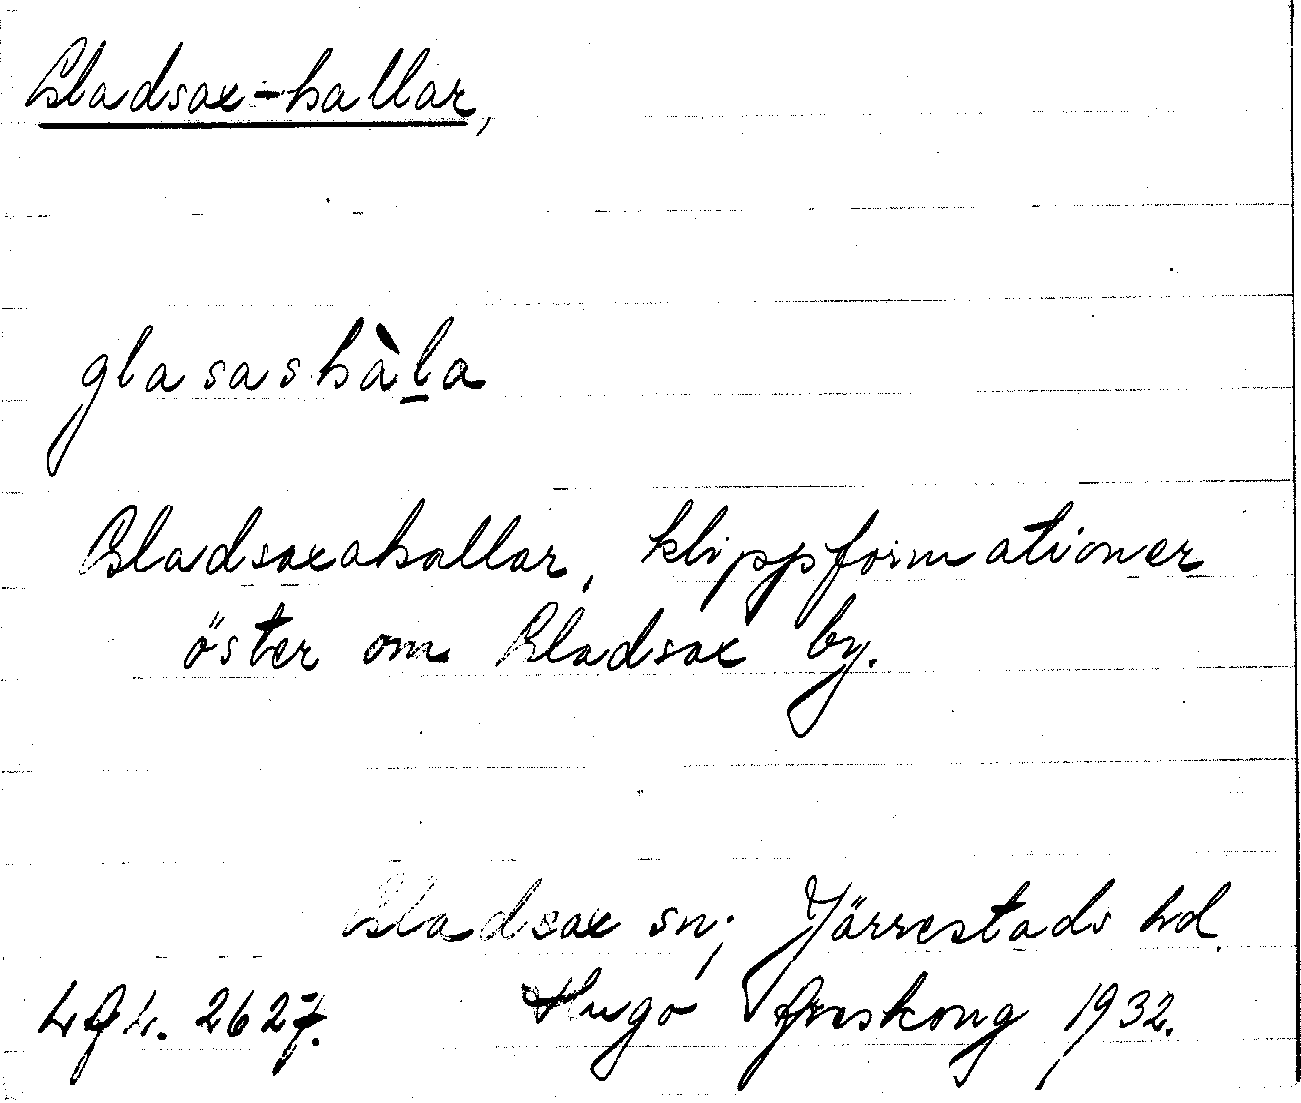 Gladsax-hallar,
glasashàla
Gladsaxahallar, klippformationer
öster om Gladsax by.
Gladsax sn; Järrestads hd.
2627. Hugo Areskoug 1932.